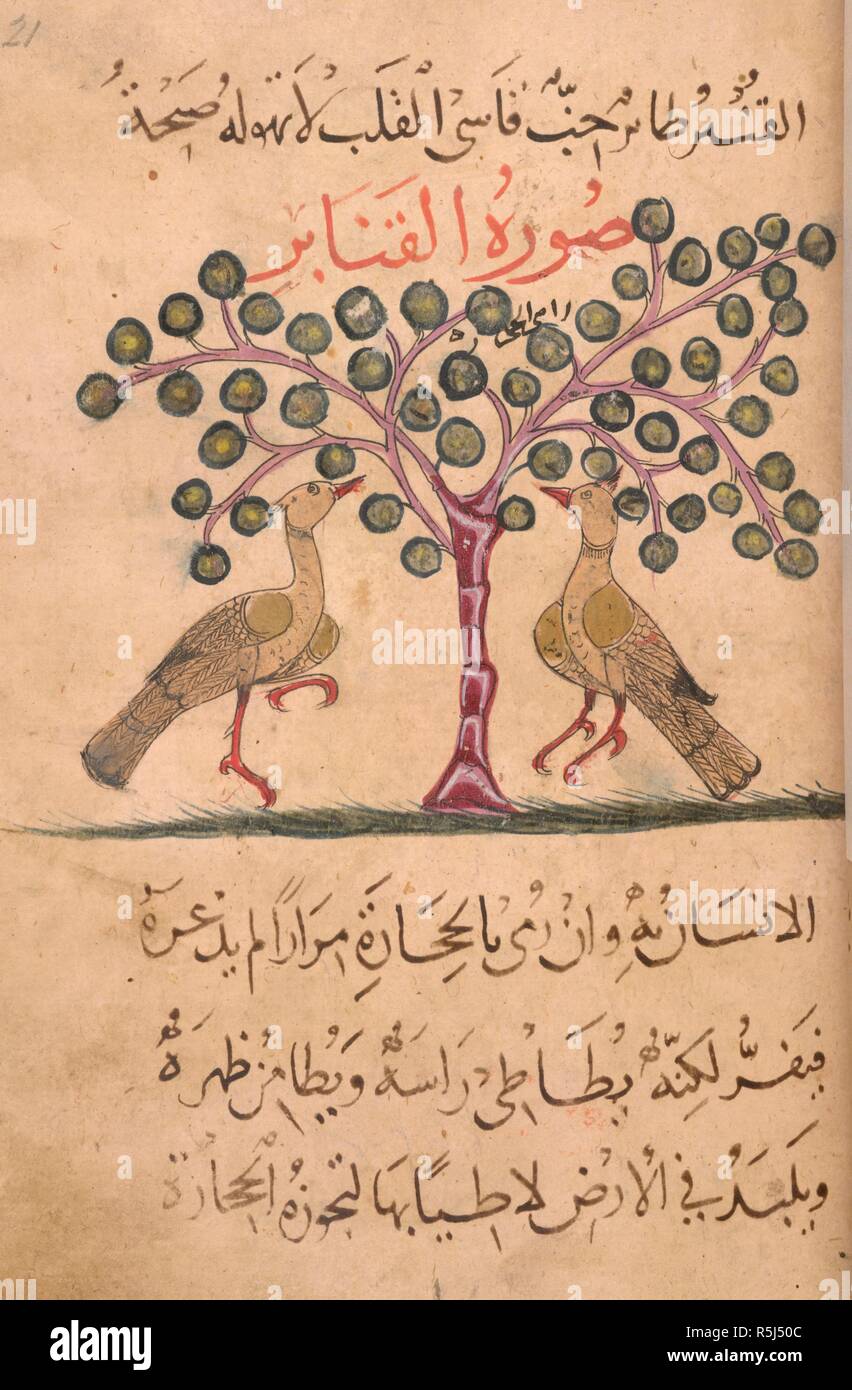 21
القنبر طائر احبّ قاسى القلب لا تهوله صيحة
صورة القنابر
الانسان به وان رمى بالحجارة مرارا لم يذعره
فيفرّ لكنّه يطاطى راسه ويطامن ظهره
ويلبد في الارض لاطيا بها لتجوزه الحجارة
alamy
Image ID: R5J50C
www.alamy.com